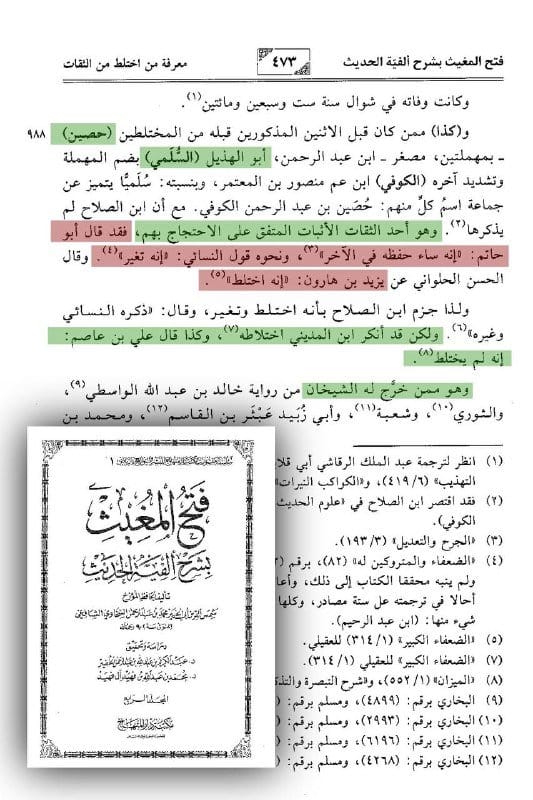 فتح المغيث بشرح ألفيّة الحديث
٤٧٣
معرفة من اختلط من الثقات
وكانت وفاته في شوال سنة ست وسبعين ومائتين(١).
و(كذا) ممن كان قبل الاثنين المذكورين قبله من المختلطين (حصين) ٩٨٨
ـ بمهملتين، مصغر ـ ابن عبد الرحمن، أبو الهذيل (السُّلَمي) بضم المهملة
وتشديد آخره (الكوفي) ابن عم منصور بن المعتمر، وبنسبته: سُلَميًا يتميز عن
جماعة اسمُ كلٍّ منهم: حُصَين بن عبد الرحمن الكوفي. مع أن ابن الصلاح لم
يذكرها(٢). وهو أحد الثقات الأثبات المتفق على الاحتجاج بهم، فقد قال أبو
حاتم: «إنه ساء حفظه في الآخر»(٣)، ونحوه قول النسائي: «إنه تغير»(٤). وقال
الحسن الحلواني عن يزيد بن هارون: «إنه اختلط»(٥).
ولذا جزم ابن الصلاح بأنه اختلط وتغير، وقال: «ذكره النسائي
وغيره»(٦). ولكن قد أنكر ابن المديني اختلاطه(٧)، وكذا قال علي بن عاصم:
إنه لم يختلط(٨).
وهو ممن خرَّج له الشيخان من رواية خالد بن عبد الله الواسطي(٩)،
والثوري(١٠)، وشعبة(١١)، وأبي زُبَيد عَبْثَر بن القاسم(١٢)، ومحمد بن
(١) انظر لترجمة عبد الملك الرقاشي أبي قلا
التهذيب» (٤١٩/٦)، و«الكواكب النيرات»
(٢) فقد اقتصر ابن الصلاح في «علوم الحديث
الكوفي).
(٣) «الجرح والتعديل» (١٩٣/٣).
(٤) «الضعفاء والمتروكين له» (٨٢)، برقم (
ولم ينبه محققا الكتاب إلى ذلك، وأعا
أحالا في ترجمته عل ستة مصادر، وكلها
شيء منها: (ابن عبد الرحيم).
(٥) «الضعفاء الكبير» (٣١٤/١) للعقيلي.
(٧) «الضعفاء الكبير» للعقيلي (٣١٤/١).
(٨) «الميزان» (٥٥٢/١)، و«شرح التبصرة والتذك
(٩) البخاري برقم: (٤٨٩٩)، ومسلم برقم: (
(١٠) البخاري برقم: (٢٩٩٣)، ومسلم برقم: (
(١١) البخاري برقم: (٦١٩٦)، ومسلم برقم: (
(١٢) البخاري برقم: (٤٢٦٨)، ومسلم برقم: (
فتح المغيث
بشرح ألفية الحديث
دراسة وتحقيق
المجلد الرابع
مكتبة دار المنهاج